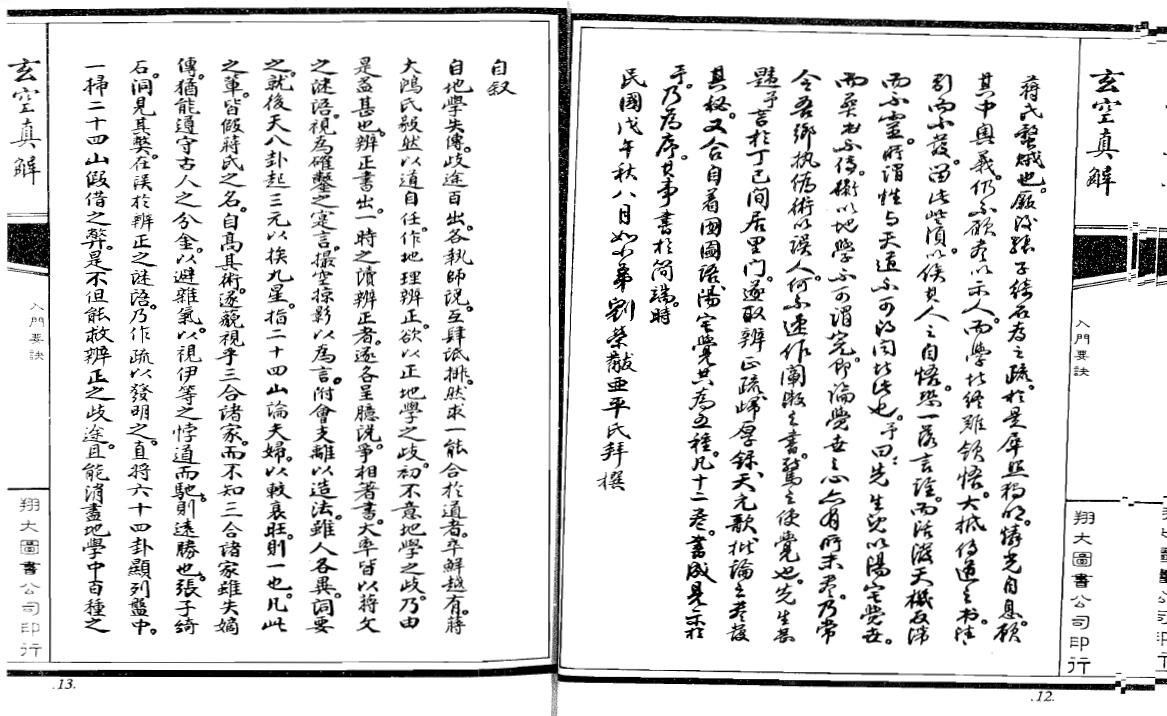 玄空真解
入門要訣
翔大圖書公司印行
蔣氏螫蛾也。厥後張子綺石為之疏。於是犀照稍明。燐光自息。顧
其中奧義。仍不願盡以示人。而學者終難領悟。大抵傳道之書。
引而不發。留此以俟其人之自悟。一落言詮。而活潑天機反滯
而不靈。所謂性與天道不可得聞者此也。予曰。先生既以陽宅覺世。
而其書不傳。術以地學不可謂完。即論覺世之心亦有所未盡。乃常
今吾鄉執偽術以誤人。何不速作闡微之書。驚之使覺也。先生甚
題予言。於丁巳間居里門。遂取辨正疏歸厚錄天元歌批論之. 甚發
其秘。又合自著圖語陽宅覺共為五種。凡十二卷。書成見示於
予。乃為序其事書於簡端。時
民國戊午秋八月如小弟劉榮黻亞平氏拜撰
.12.
自叙
自地學失傳。歧途百出。各執師說。互肆詆排。然求一能合於道者。卒鮮越有。蔣
大鴻氏毅然以道自任。作地理辨正。欲以正地學之歧。初不意地學之歧。乃由
是益甚也。辨正書出。一時之讀辨正者。逐各呈臆說。爭相著書。大率皆以蔣文
之謎語。視為確鑿之寔言。撮空掠影以為言。附會支離以造法。雖人各異詞。要
之。就後天八卦起三元以挨九星。指二十四山論夫婦。以較衰旺。則一也。凡此
之輩。皆假蔣氏之名。自高其術。遂藐視乎三合諸家。而不知三合諸家雖失嫡
傳。猶能遵守古人之分金。以避雜氣。以視伊等之悖道而馳。則遠勝也。張子綺
石。洞見其弊。在誤於辨正之謎語。乃作疏以發明之。直將六十四卦顯列盤中。
一掃二十四山假借之弊。是不但能救辨正之歧途。且能消盡地學中百種之
玄空真解
入門要訣
翔大圖書公司印行
.13.